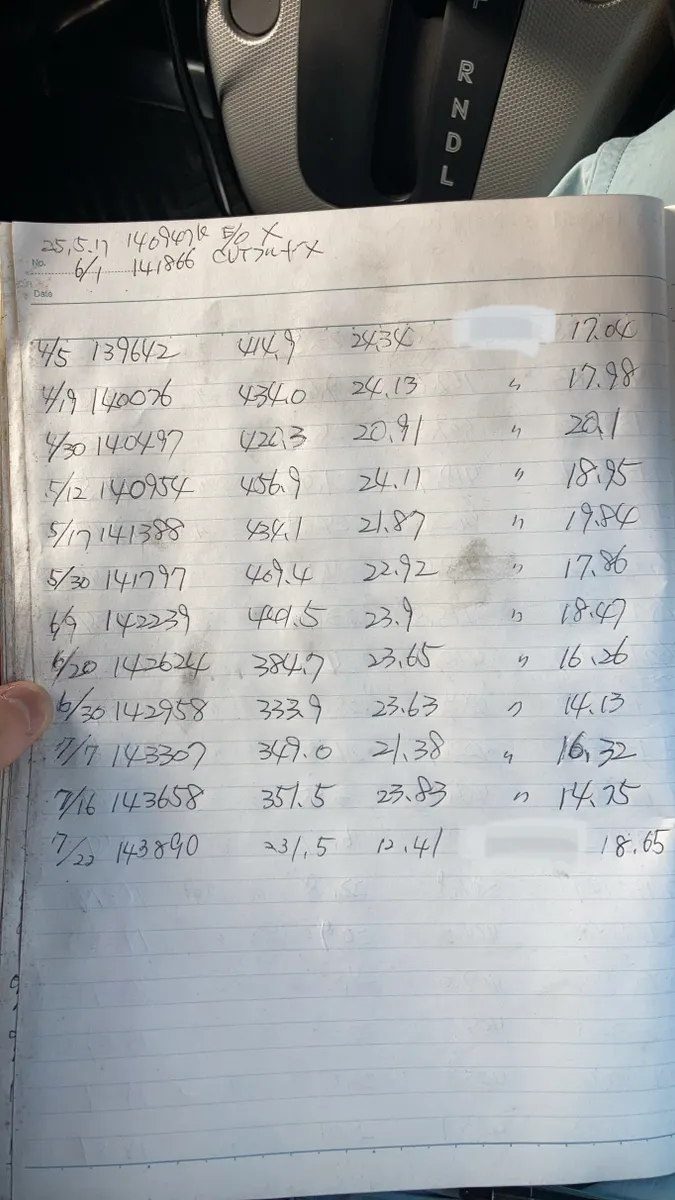 R
N
D
L
25.5.17 140947k E/O X
No. 6/1 141866 CVTフルード X
Date
4/5 139642 414.9 24.34 17.04
4/19 140076 434.0 24.13 〃 17.98
4/30 140497 420.3 20.91 〃 20.1
5/12 140954 456.9 24.11 〃 18.95
5/17 141388 434.1 21.87 〃 19.84
5/30 141797 409.4 22.92 〃 17.86
6/9 142239 441.5 23.9 〃 18.47
6/20 142624 384.7 23.65 〃 16.26
6/30 142958 333.9 23.63 〃 14.13
7/7 143307 349.0 21.38 〃 16.32
7/16 143658 351.5 23.83 〃 14.75
7/22 143890 231.5 12.41 18.65